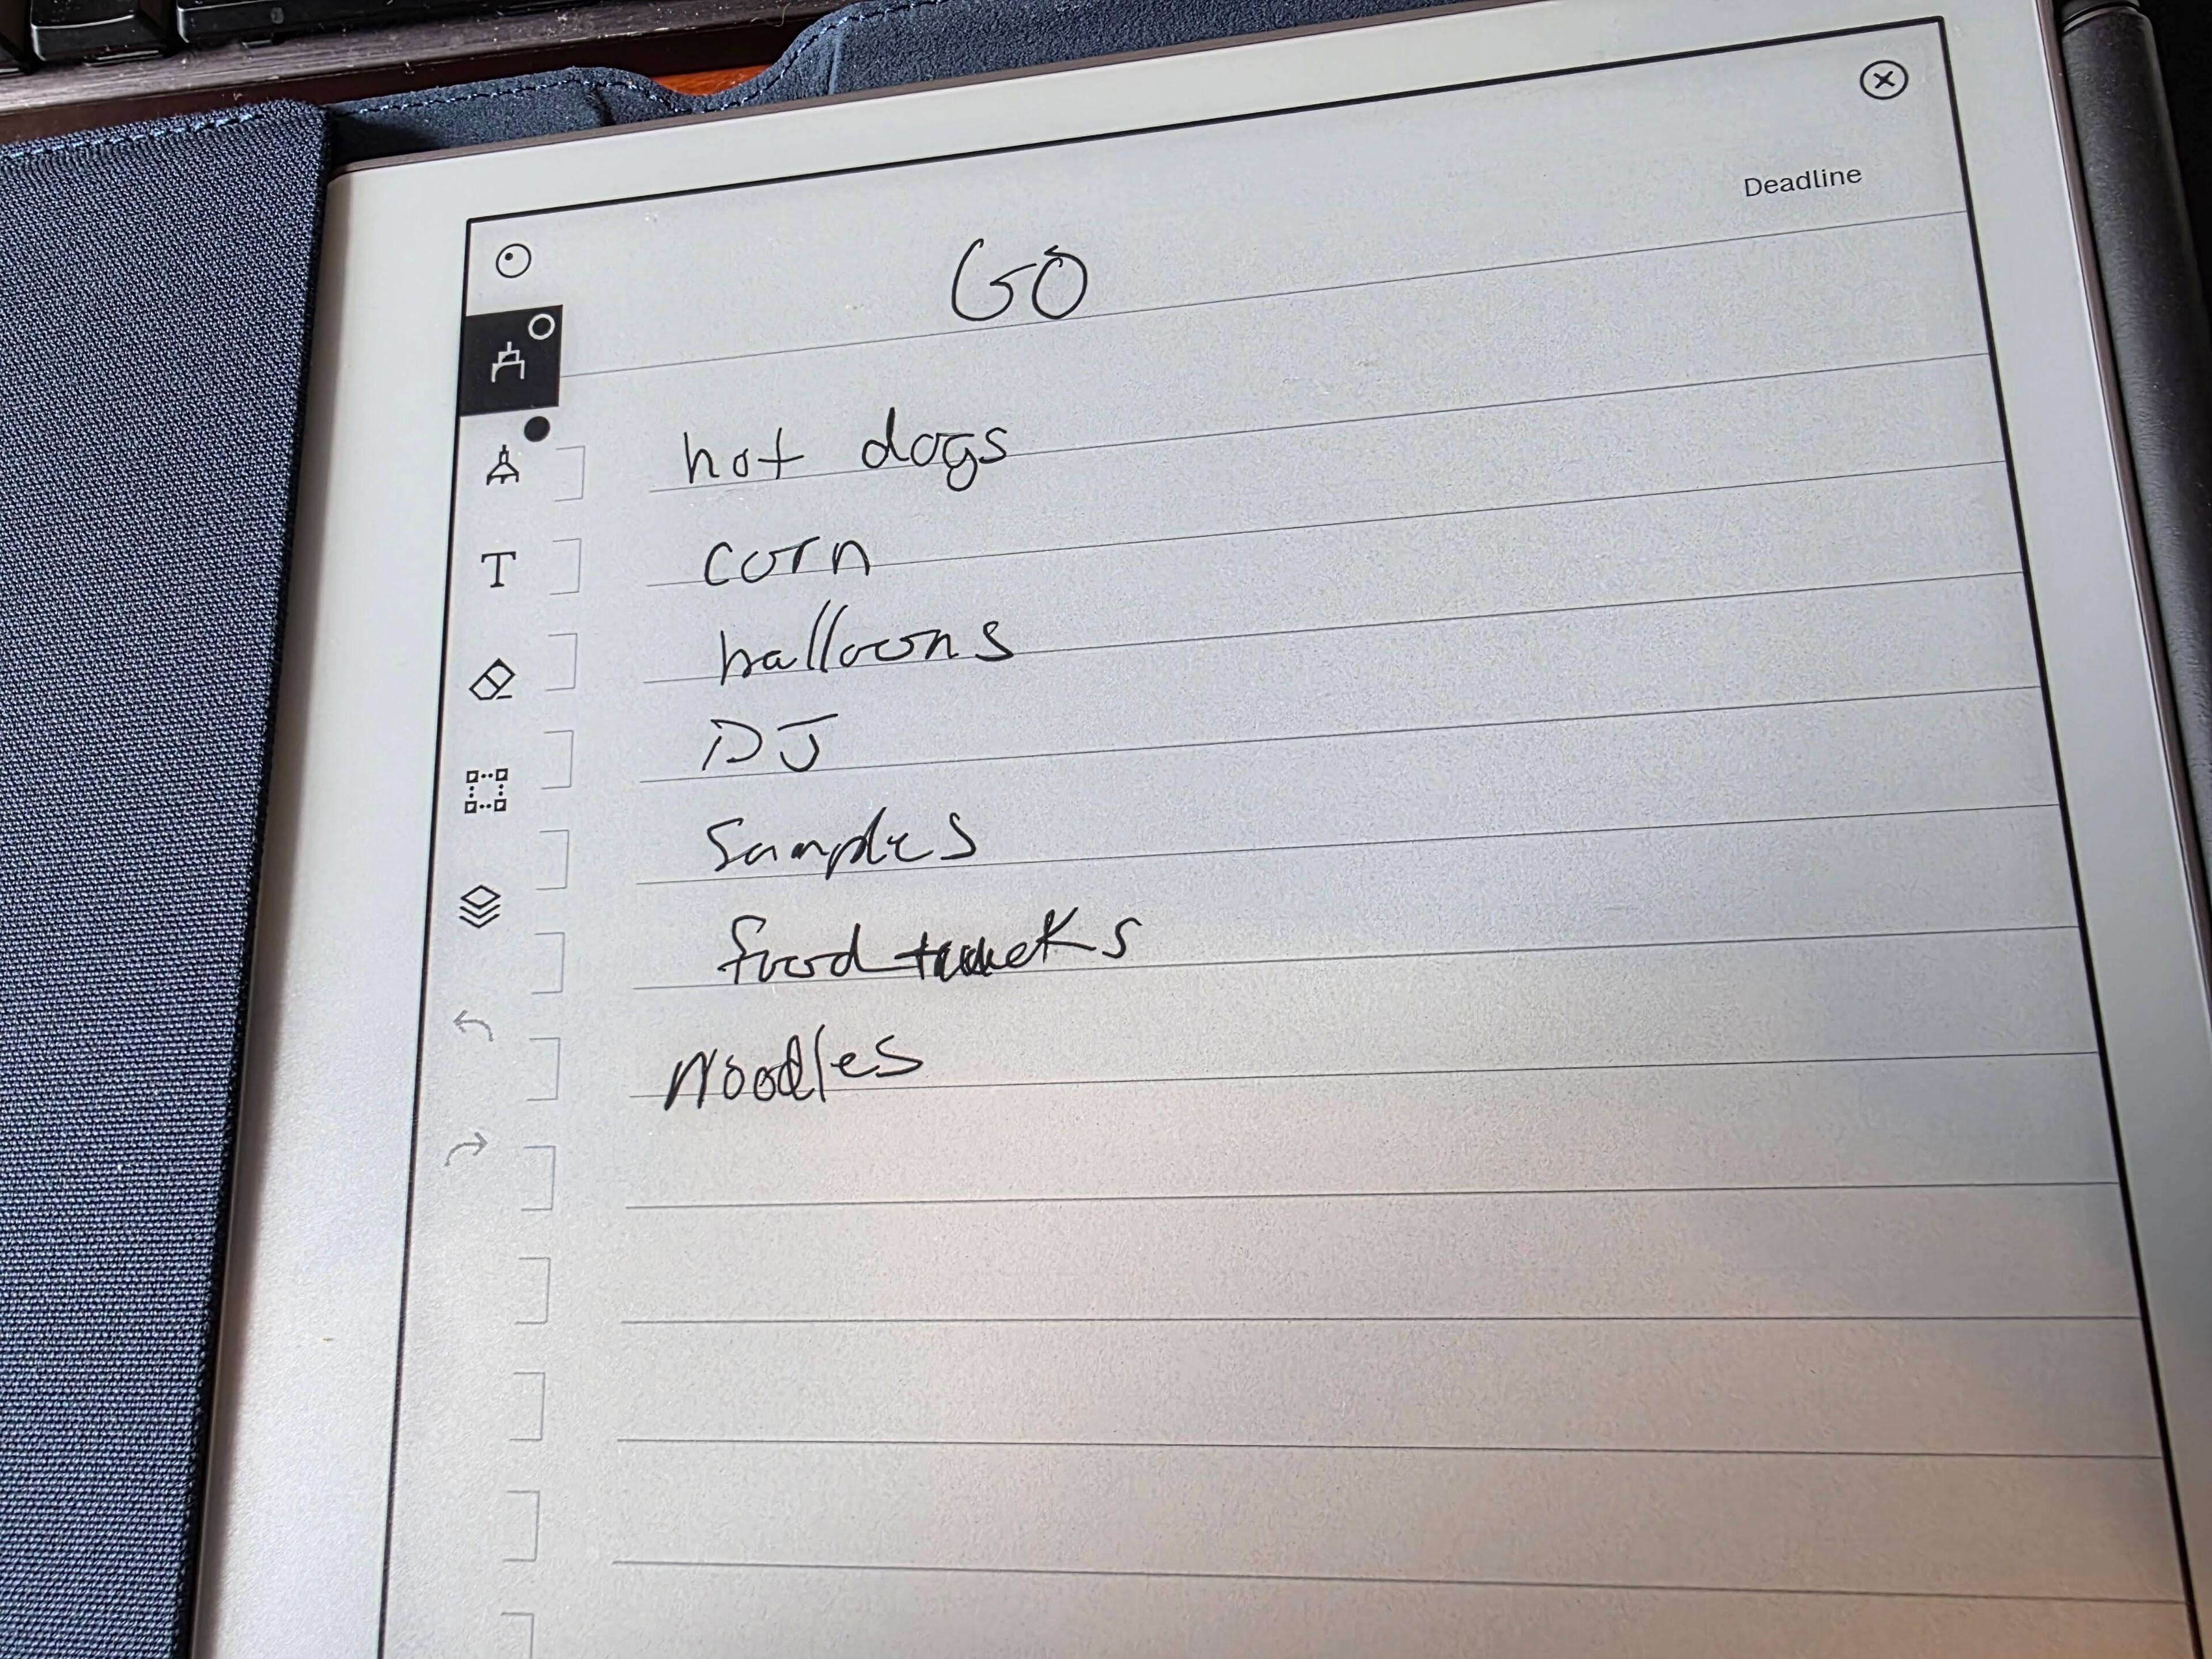 Deadline
GO
hot dogs
corn
balloons
DJ
T
Samples
food trucks
Noodles